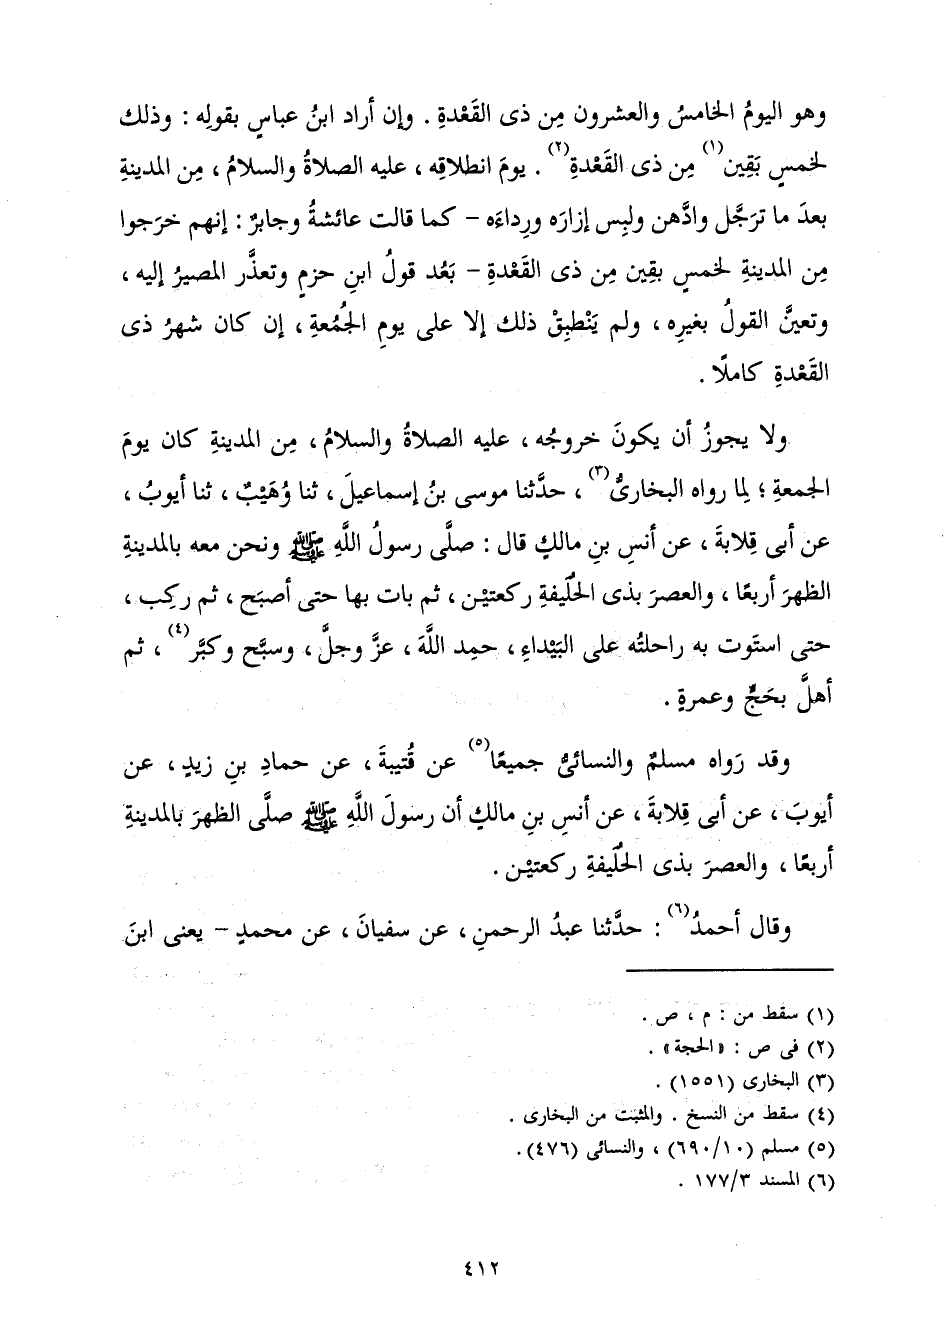 وهو اليومُ الخامسُ والعشرون مِن ذى القَعْدةِ . وإن أراد ابنُ عباسٍ بقولِه : وذلك
لخمسٍ بَقِين(١) مِن ذى القَعْدةِ(٢) . يومَ انطلاقِه ، عليه الصلاةُ والسلامُ ، مِن المدينةِ
بعدَ ما ترَجَّل وادَّهن ولبِس إزارَه ورِداءَه - كما قالت عائشةُ وجابرٌ : إنهم خرَجوا
مِن المدينةِ لخمسٍ بقِين مِن ذى القَعْدةِ - بَعُد قولُ ابنِ حزمٍ وتعذَّر المصيرُ إليه ،
وتعينَّ القولُ بغيرِه ، ولم يَنْطبِقْ ذلك إلا على يومِ الجُمُعةِ ، إن كان شهرُ ذى
القَعْدةِ كاملًا .
ولا يجوزُ أن يكونَ خروجُه ، عليه الصلاةُ والسلامُ ، مِن المدينةِ كان يومَ
الجمعةِ ؛ لِما رواه البخارىُّ(٣) ، حدَّثنا موسى بنُ إسماعيلَ ، ثنا وُهَيْبٌ ، ثنا أيوبُ ،
عن أبى قِلابةَ ، عن أنسِ بنِ مالكٍ قال : صلَّى رسولُ اللَّهِ ﷺ ونحن معه بالمدينةِ
الظهرَ أربعًا ، والعصرَ بذى الحُلَيفةِ ركعتيْن ، ثم بات بها حتى أصبَح ، ثم ركِب ،
حتى استَوت به راحلتُه على البَيْداءِ ، حمِد اللَّهَ ، عزَّ وجلَّ ، وسبَّح وكبَّر(٤) ، ثم
أهلَّ بحَجٍّ وعمرةٍ .
وقد رَواه مسلمٌ والنسائىُّ جميعًا(٥) عن قُتيبةَ ، عن حمادِ بنِ زيدٍ ، عن
أيوبَ ، عن أبى قِلابةَ ، عن أنسِ بنِ مالكٍ أن رسولَ اللَّهِ ﷺ صلَّى الظهرَ بالمدينةِ
أربعًا ، والعصرَ بذى الحُلَيفةِ ركعتيْن .
وقال أحمدُ(٦) : حدَّثنا عبدُ الرحمنِ ، عن سفيانَ ، عن محمدٍ - يعنى ابنَ
(١) سقط من : م ، ص .
(٢) فى ص : «الحجة» .
(٣) البخارى (١٥٥١) .
(٤) سقط من النسخ . والمثبت من البخارى .
(٥) مسلم (٦٩٠/١٠) ، والنسائى (٤٧٦) .
(٦) المسند ١٧٧/٣ .
٤١٢